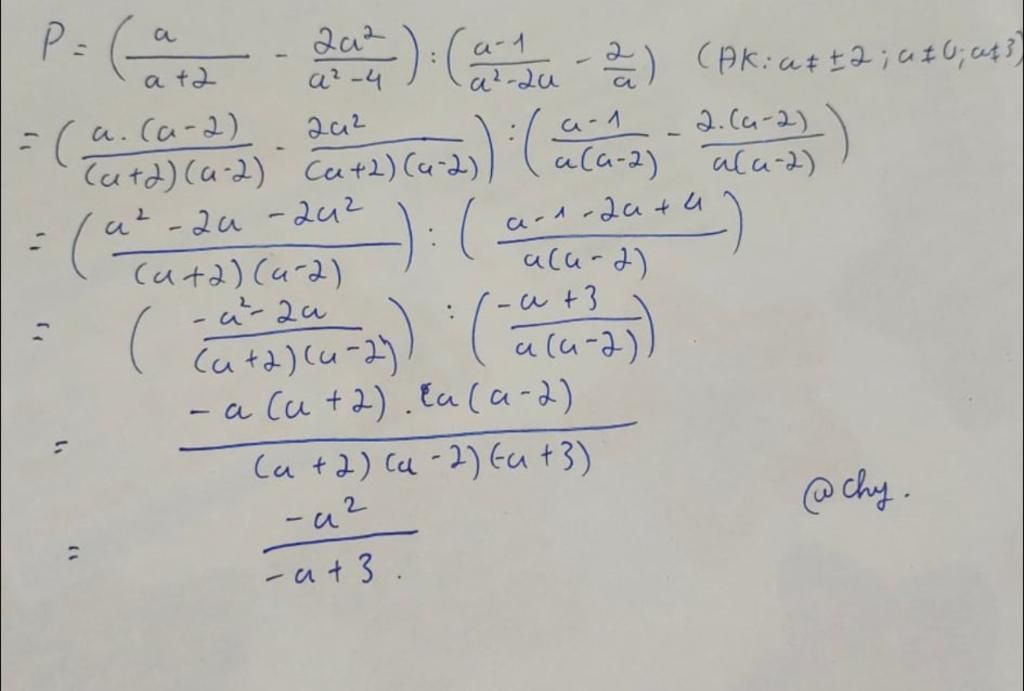 P = (a/(a+2) - 2a²/(a²-4)) : ((a-1)/(a²-2a) - 2/a) (ĐK: a ≠ ±2; a ≠ 0; a ≠ 3)
= (a.(a-2)/((a+2)(a-2)) - 2a²/((a+2)(a-2))) : ((a-1)/(a(a-2)) - 2.(a-2)/(a(a-2)))
= ((a² - 2a - 2a²)/((a+2)(a-2))) : ((a-1-2a+4)/(a(a-2)))
= ((-a²-2a)/((a+2)(a-2))) : ((-a+3)/(a(a-2)))
= (-a(a+2).a(a-2))/((a+2)(a-2)(-a+3))
@chy.
= -a²/(-a+3).